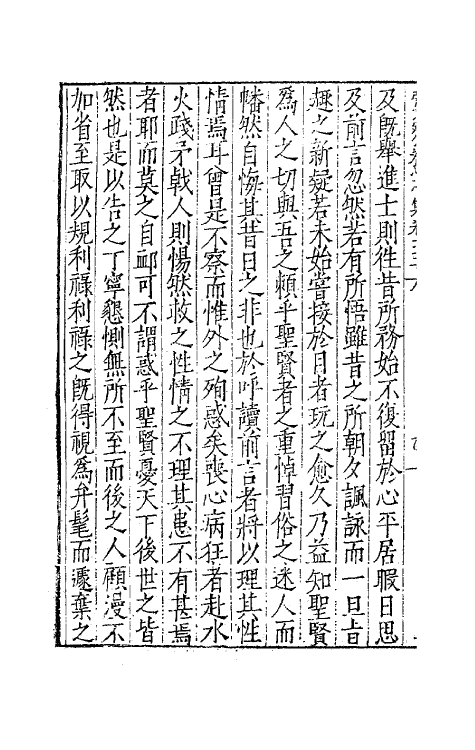 及既舉進士則徃昔所務始不復留於心平居暇日思
及前言忽然若有所悟雖昔之所朝夕諷詠而一旦旨
趣之新疑若未始嘗接於目者玩之愈久乃益知聖賢
爲人之切與吾之頼乎聖賢者之重悼習俗之迷人而
幡然自悔其昔日之非也於呼讀前言者將以理其性
情焉耳曾是不察而惟外之殉惑矣喪心病狂者赴水
火踐矛戟人則惕然救之性情之不理其患不有甚焉
者耶而莫之自䘏可不謂惑乎聖賢憂天下後世之皆
然也是以告之丁寧懇惻無所不至而後之人顧漫不
加省至取以規利祿利祿之既得視爲弁髦而遽棄之